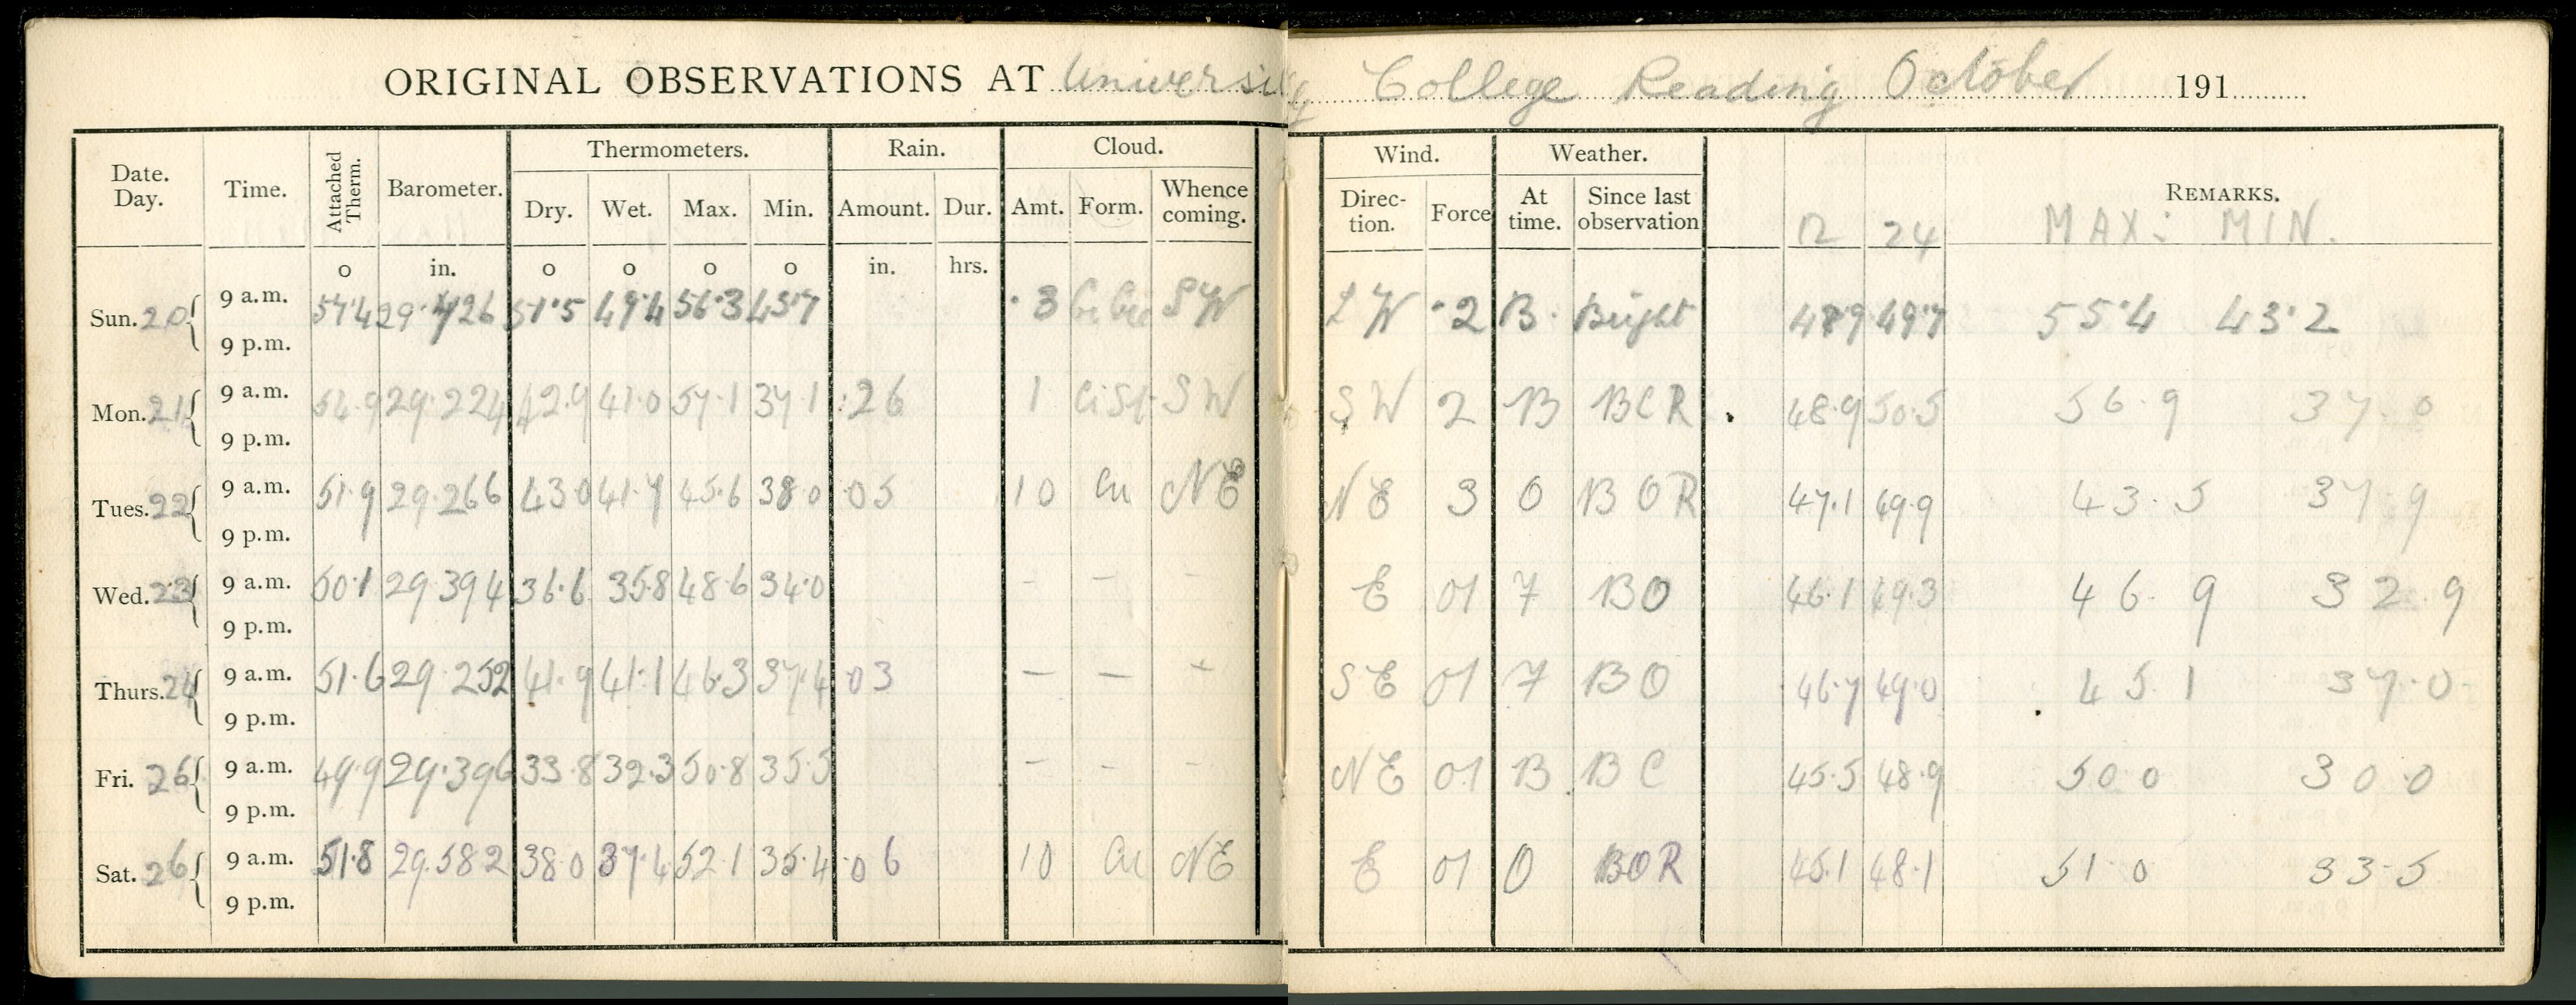 ORIGINAL OBSERVATIONS AT University College Reading October 191
Date. Day. Time. Attached Therm. Barometer. Thermometers. Rain. Cloud. Wind. Weather. REMARKS.
Dry. Wet. Max. Min. Amount. Dur. Amt. Form. Whence coming. Direc- tion. Force At time. Since last observation 12 24 MAX: MIN.
o in. o o o o in. hrs.
Sun. 20 9 a.m. 57.4 29.426 51.5 49.4 56.3 45.7 .3 SW SW .2 B. Bright 49.7 55.4 43.2
9 p.m.
Mon. 21 9 a.m. 54.9 29.224 42.9 41.0 57.1 37.1 .26 1 CiSt SW SW 2 B BCR 48.9 50.5 56.9 37.0
9 p.m.
Tues. 22 9 a.m. 51.9 29.266 43.0 41.7 45.6 38.0 .05 10 Cu NE NE 3 O BOR 47.1 49.9 43.5 37.9
9 p.m.
Wed. 23 9 a.m. 50.1 29.394 36.6 35.8 48.6 34.0 - - - E 01 7 BO 46.1 49.3 46.9 32.9
9 p.m.
Thurs. 24 9 a.m. 51.6 29.252 41.9 41.1 46.3 37.4 .03 - - - SE 01 7 BO 46.7 49.0 45.1 37.0
9 p.m.
Fri. 26 9 a.m. 49.9 29.396 33.8 32.3 50.8 35.5 - - - NE 01 B BC 45.5 48.9 50.0 30.0
9 p.m.
Sat. 26 9 a.m. 51.8 29.582 38.0 37.4 52.1 35.4 .06 10 Cu NE E 01 O BOR 45.1 48.1 51.0 33.5
9 p.m.